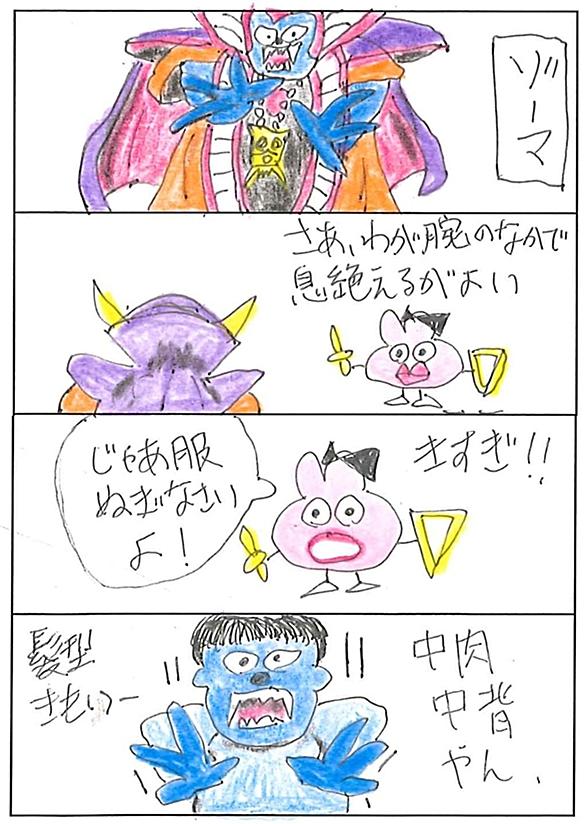 ゾーマ
さあ、わが腕のなかで
息絶えるがよい
きすぎ!!
じゃあ服
ぬぎなさい
よ!
中肉
中背
やん、
髪型
きもいー